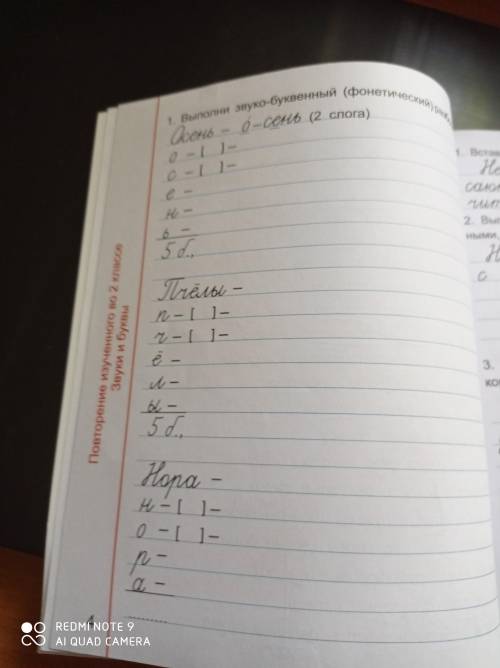 1. Выполни звуко-буквенный (фонетический)
Осень – о́-сень (2 слога)
о – [ ] –
с – [ ] –
е –
н –
ь –
5 б.,
Пчёлы –
п – [ ] –
ч – [ ] –
ё –
л –
ы –
5 б.,
Нора –
н – [ ] –
о – [ ] –
р –
а –
Повторение изученного во 2 классе
Звуки и буквы
4
1. Встав
Не
саю
чит
2. Вып
ными,
Н
с
3.
ко
REDMI NOTE 9
AI QUAD CAMERA